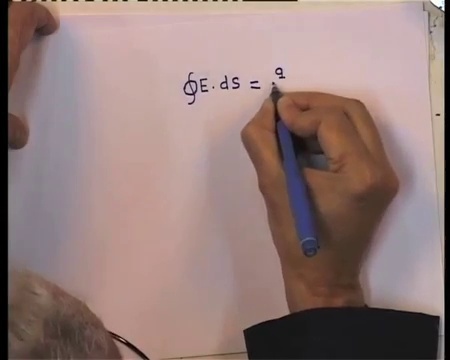 ∮E. ds = q